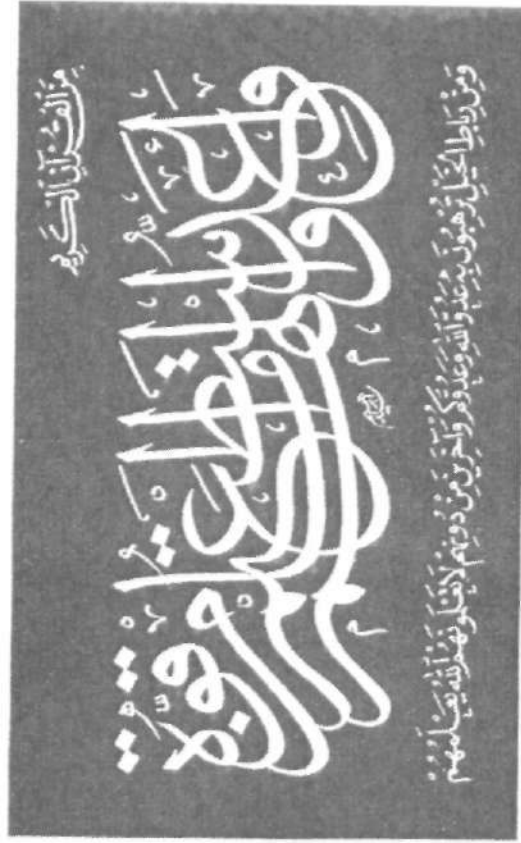 مِنَ القُرْآنِ الكَرِيمِ
وَأَعِدُّوا لَهُمْ مَا اسْتَطَعْتُمْ مِنْ قُوَّةٍ
وَمِنْ رِبَاطِ الخَيْلِ تُرْهِبُونَ بِهِ عَدُوَّ اللهِ وَعَدُوَّكُمْ وَآخَرِينَ مِنْ دُونِهِمْ لَا تَعْلَمُونَهُمُ اللهُ يَعْلَمُهُمْ